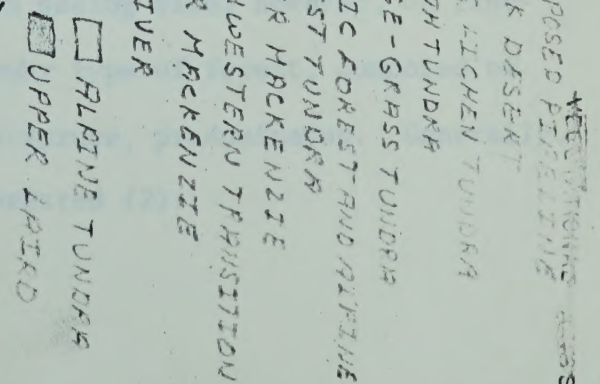 VEGETATIONAL
POSED PIPELINE
K DESERT
LICHEN TUNDRA
TH TUNDRA
GE-GRASS TUNDRA
IC FOREST AND ALPINE
ST TUNDRA
R MACKENZIE
HWESTERN TRANSITION
R MACKENZIE
IVER
ALPINE TUNDRA
UPPER LAIRD